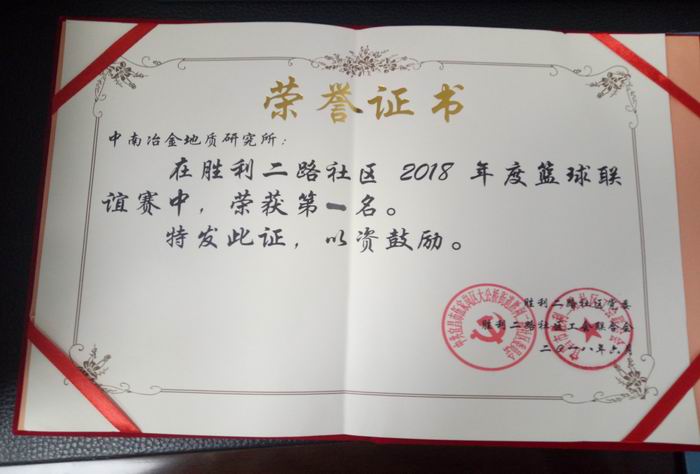 荣誉证书
中南冶金地质研究所：
在胜利二路社区 2018 年度篮球联
谊赛中，荣获第一名。
特发此证，以资鼓励。
胜利二路社区党委
胜利二路社区工会联合会
二〇一八年六月